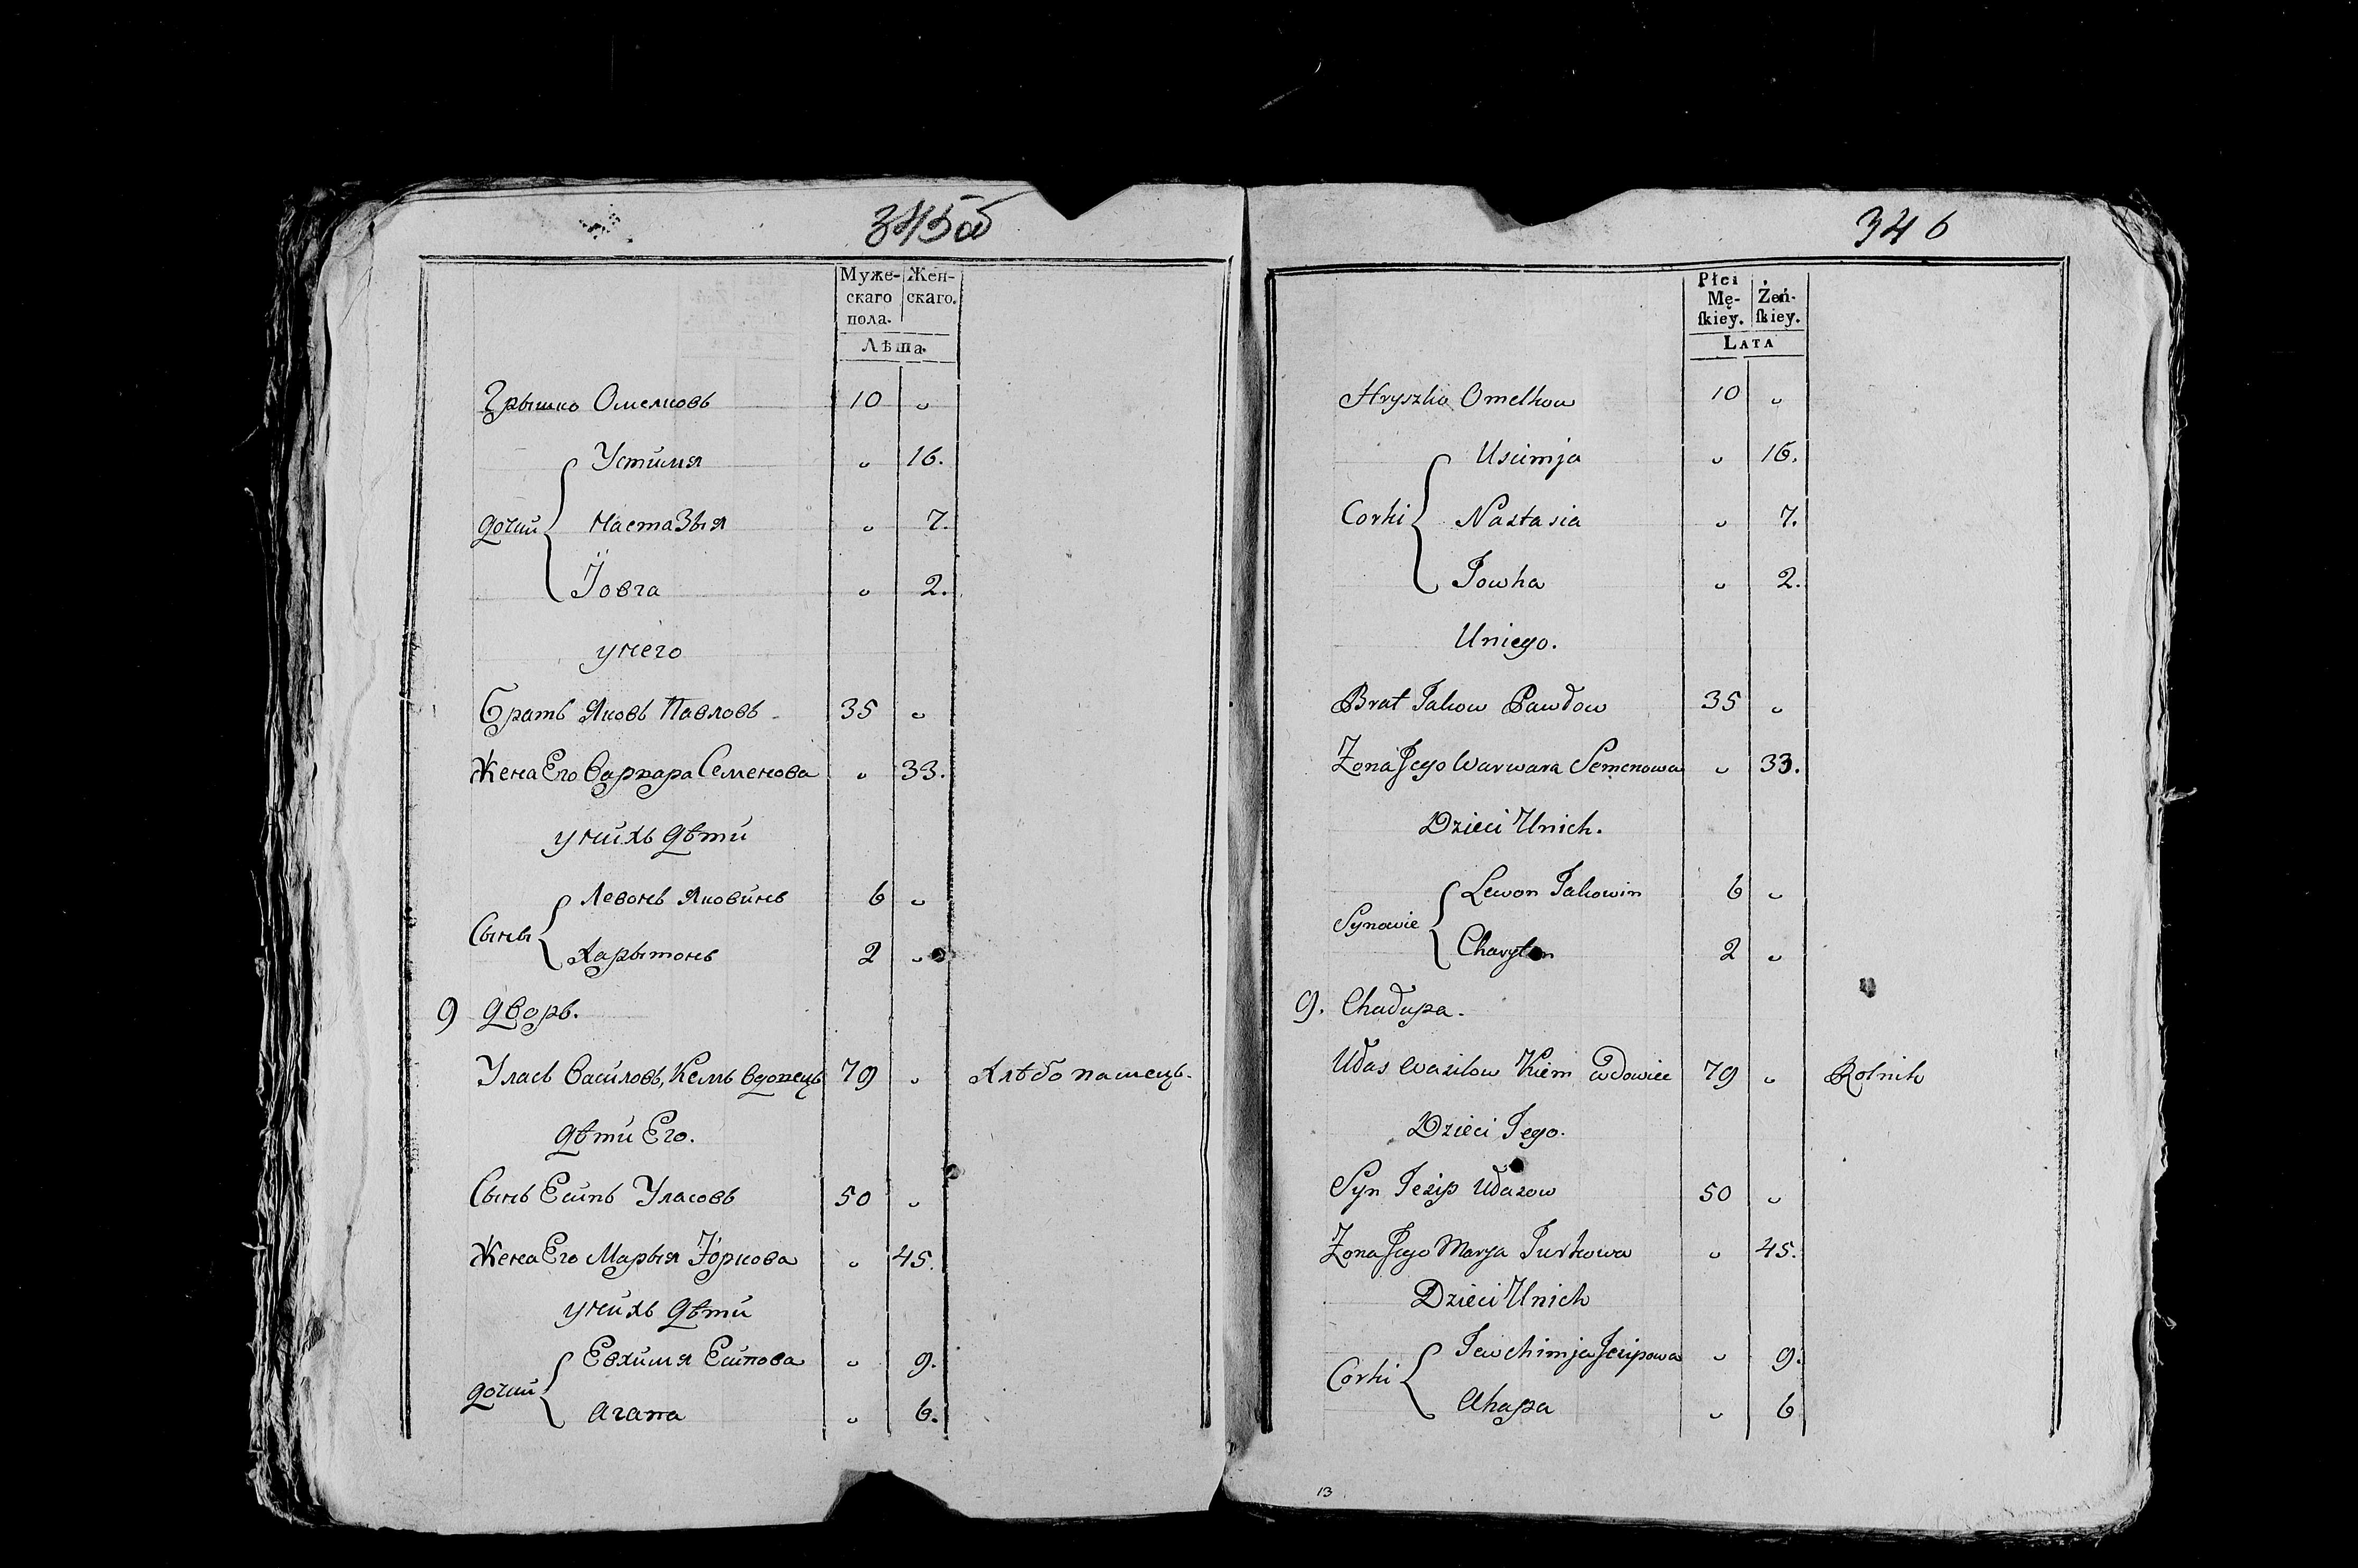 345об
Муже- Жен-
скаго скаго.
пола.
Лѣта.
Грышко Омелковъ 10 "
Устимія " 16.
дочки Настазыя " 7.
Їовга " 2.
унего
Братъ Яковъ Павловъ 35 "
Жена Его Варвара Семенова " 33.
унихъ дѣти
Левонъ Яковинъ 6 "
Сыны
Харытонъ 2 "
9 дворъ.
Уласъ Василовъ, Кемъ вдовецъ 79 " Хлѣбопашецъ.
дѣти Его.
Сынъ Есипъ Уласовъ 50 "
Жена Его Марыя Юркова " 45.
унихъ дѣти
Евхимія Есипова " 9.
дочки
Агапа " 6.
346
Płci
Mę- Żeń-
ſkiey. ſkiey.
LATA
Hryszko Omelkow 10 "
Uscimja " 16.
Corki Nastasia " 7.
Jowha " 2.
Uniego.
Brat Jakow Pawłow 35 "
Zona Jego Warwara Semenowa " 33.
Dzieci Unich.
Lewon Jakowin 6 "
Synowie
Charyton 2 "
9. Chałupa.
Ułas Wasilow Kiem wdowiec 79 " Rolnik
Dzieci Jego.
Syn Jesip Ułasow 50 "
Zona Jego Marya Jurkowa " 45.
Dzieci Unich
Jewchimja Jesipowa " 9.
Corki
Ahapa " 6
13